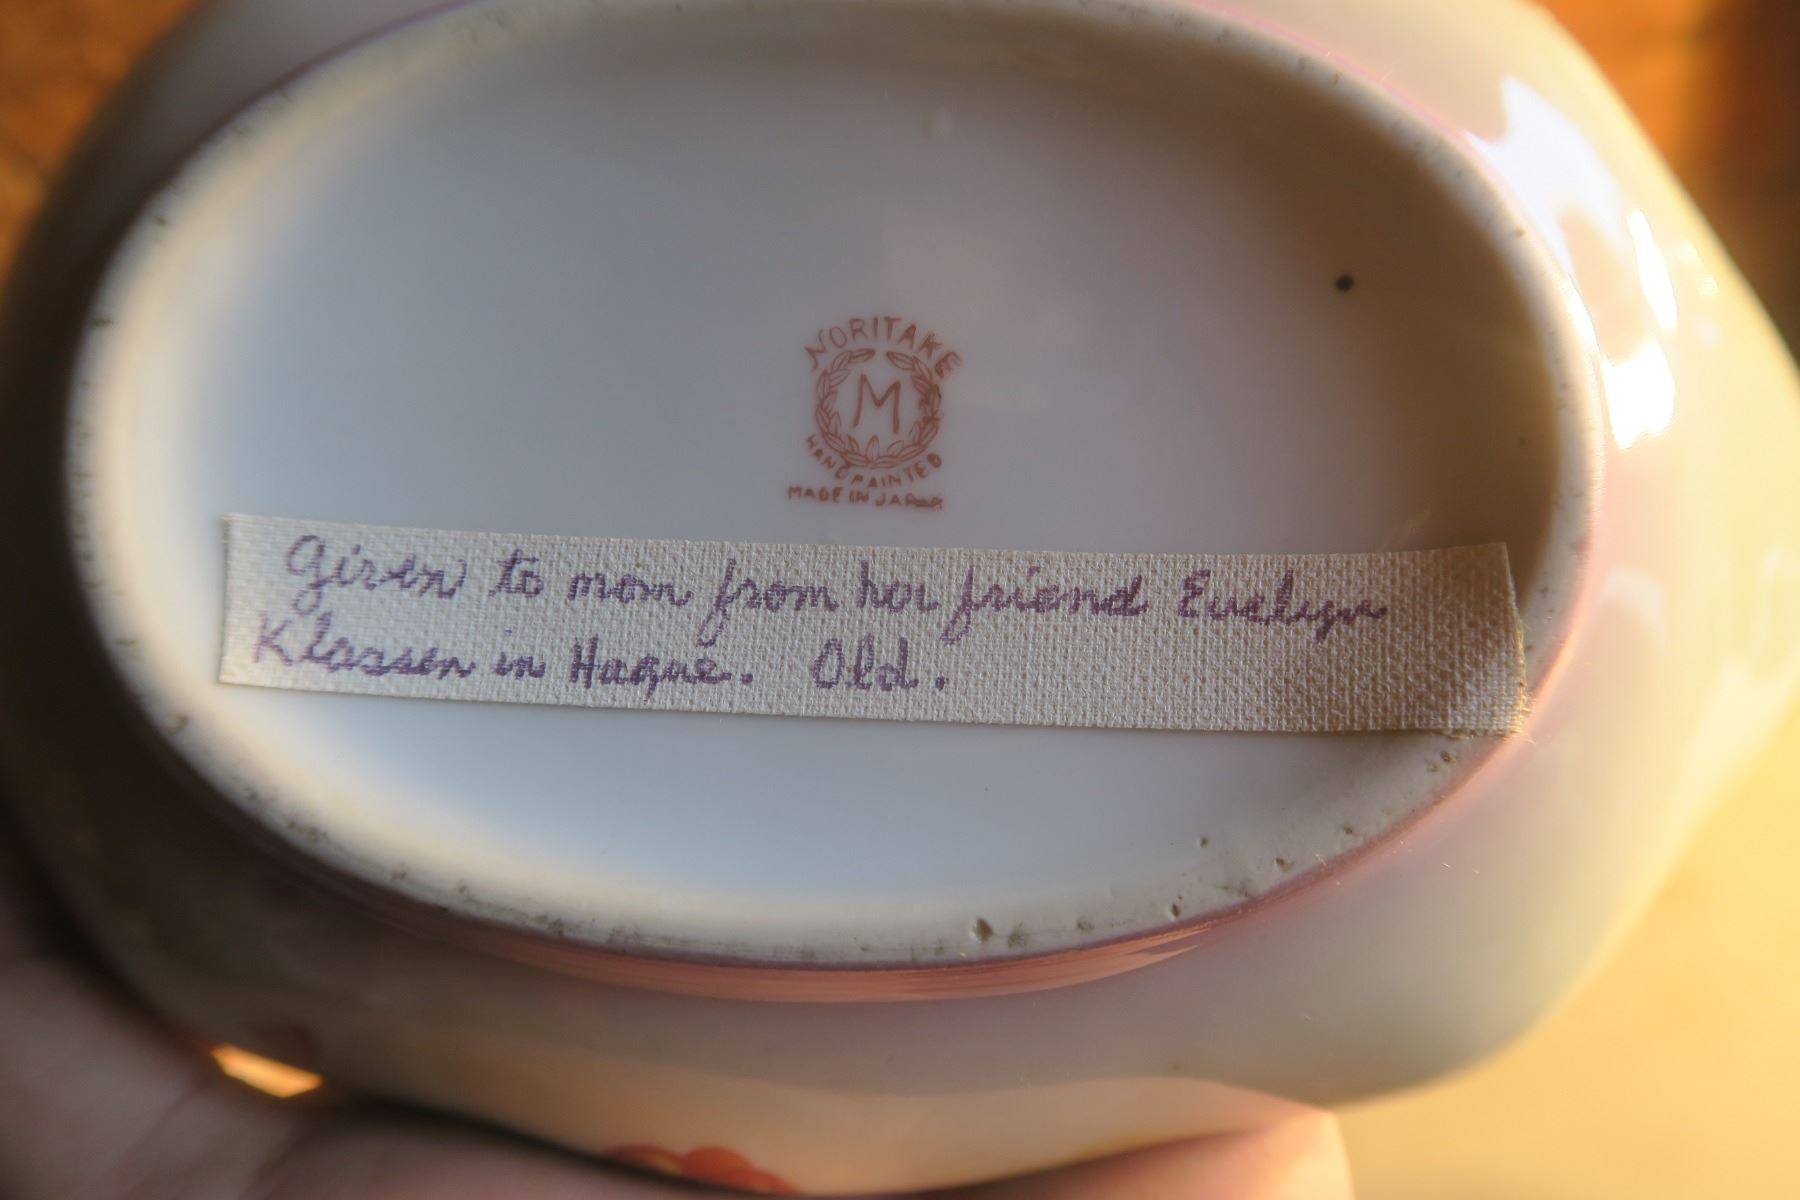 NORITAKE
M
HAND PAINTED
MADE IN JAPAN
Given to mom from her friend Evelyn
Klassen in Hague. Old.